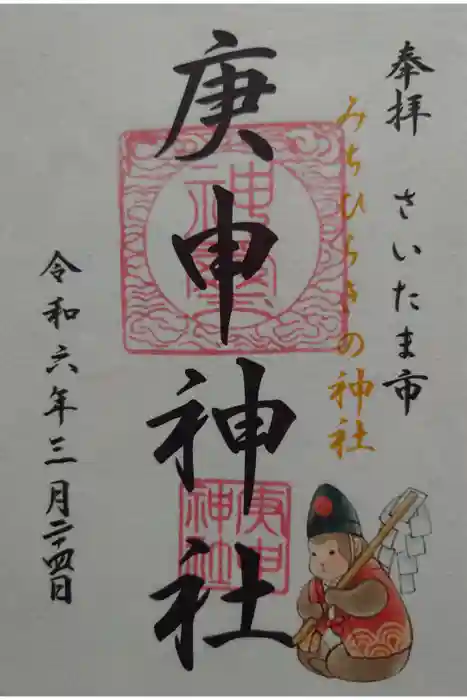 奉拝 さいたま市
みちひらきの神社
庚申神社
庚申
神社
令和六年三月二十四日